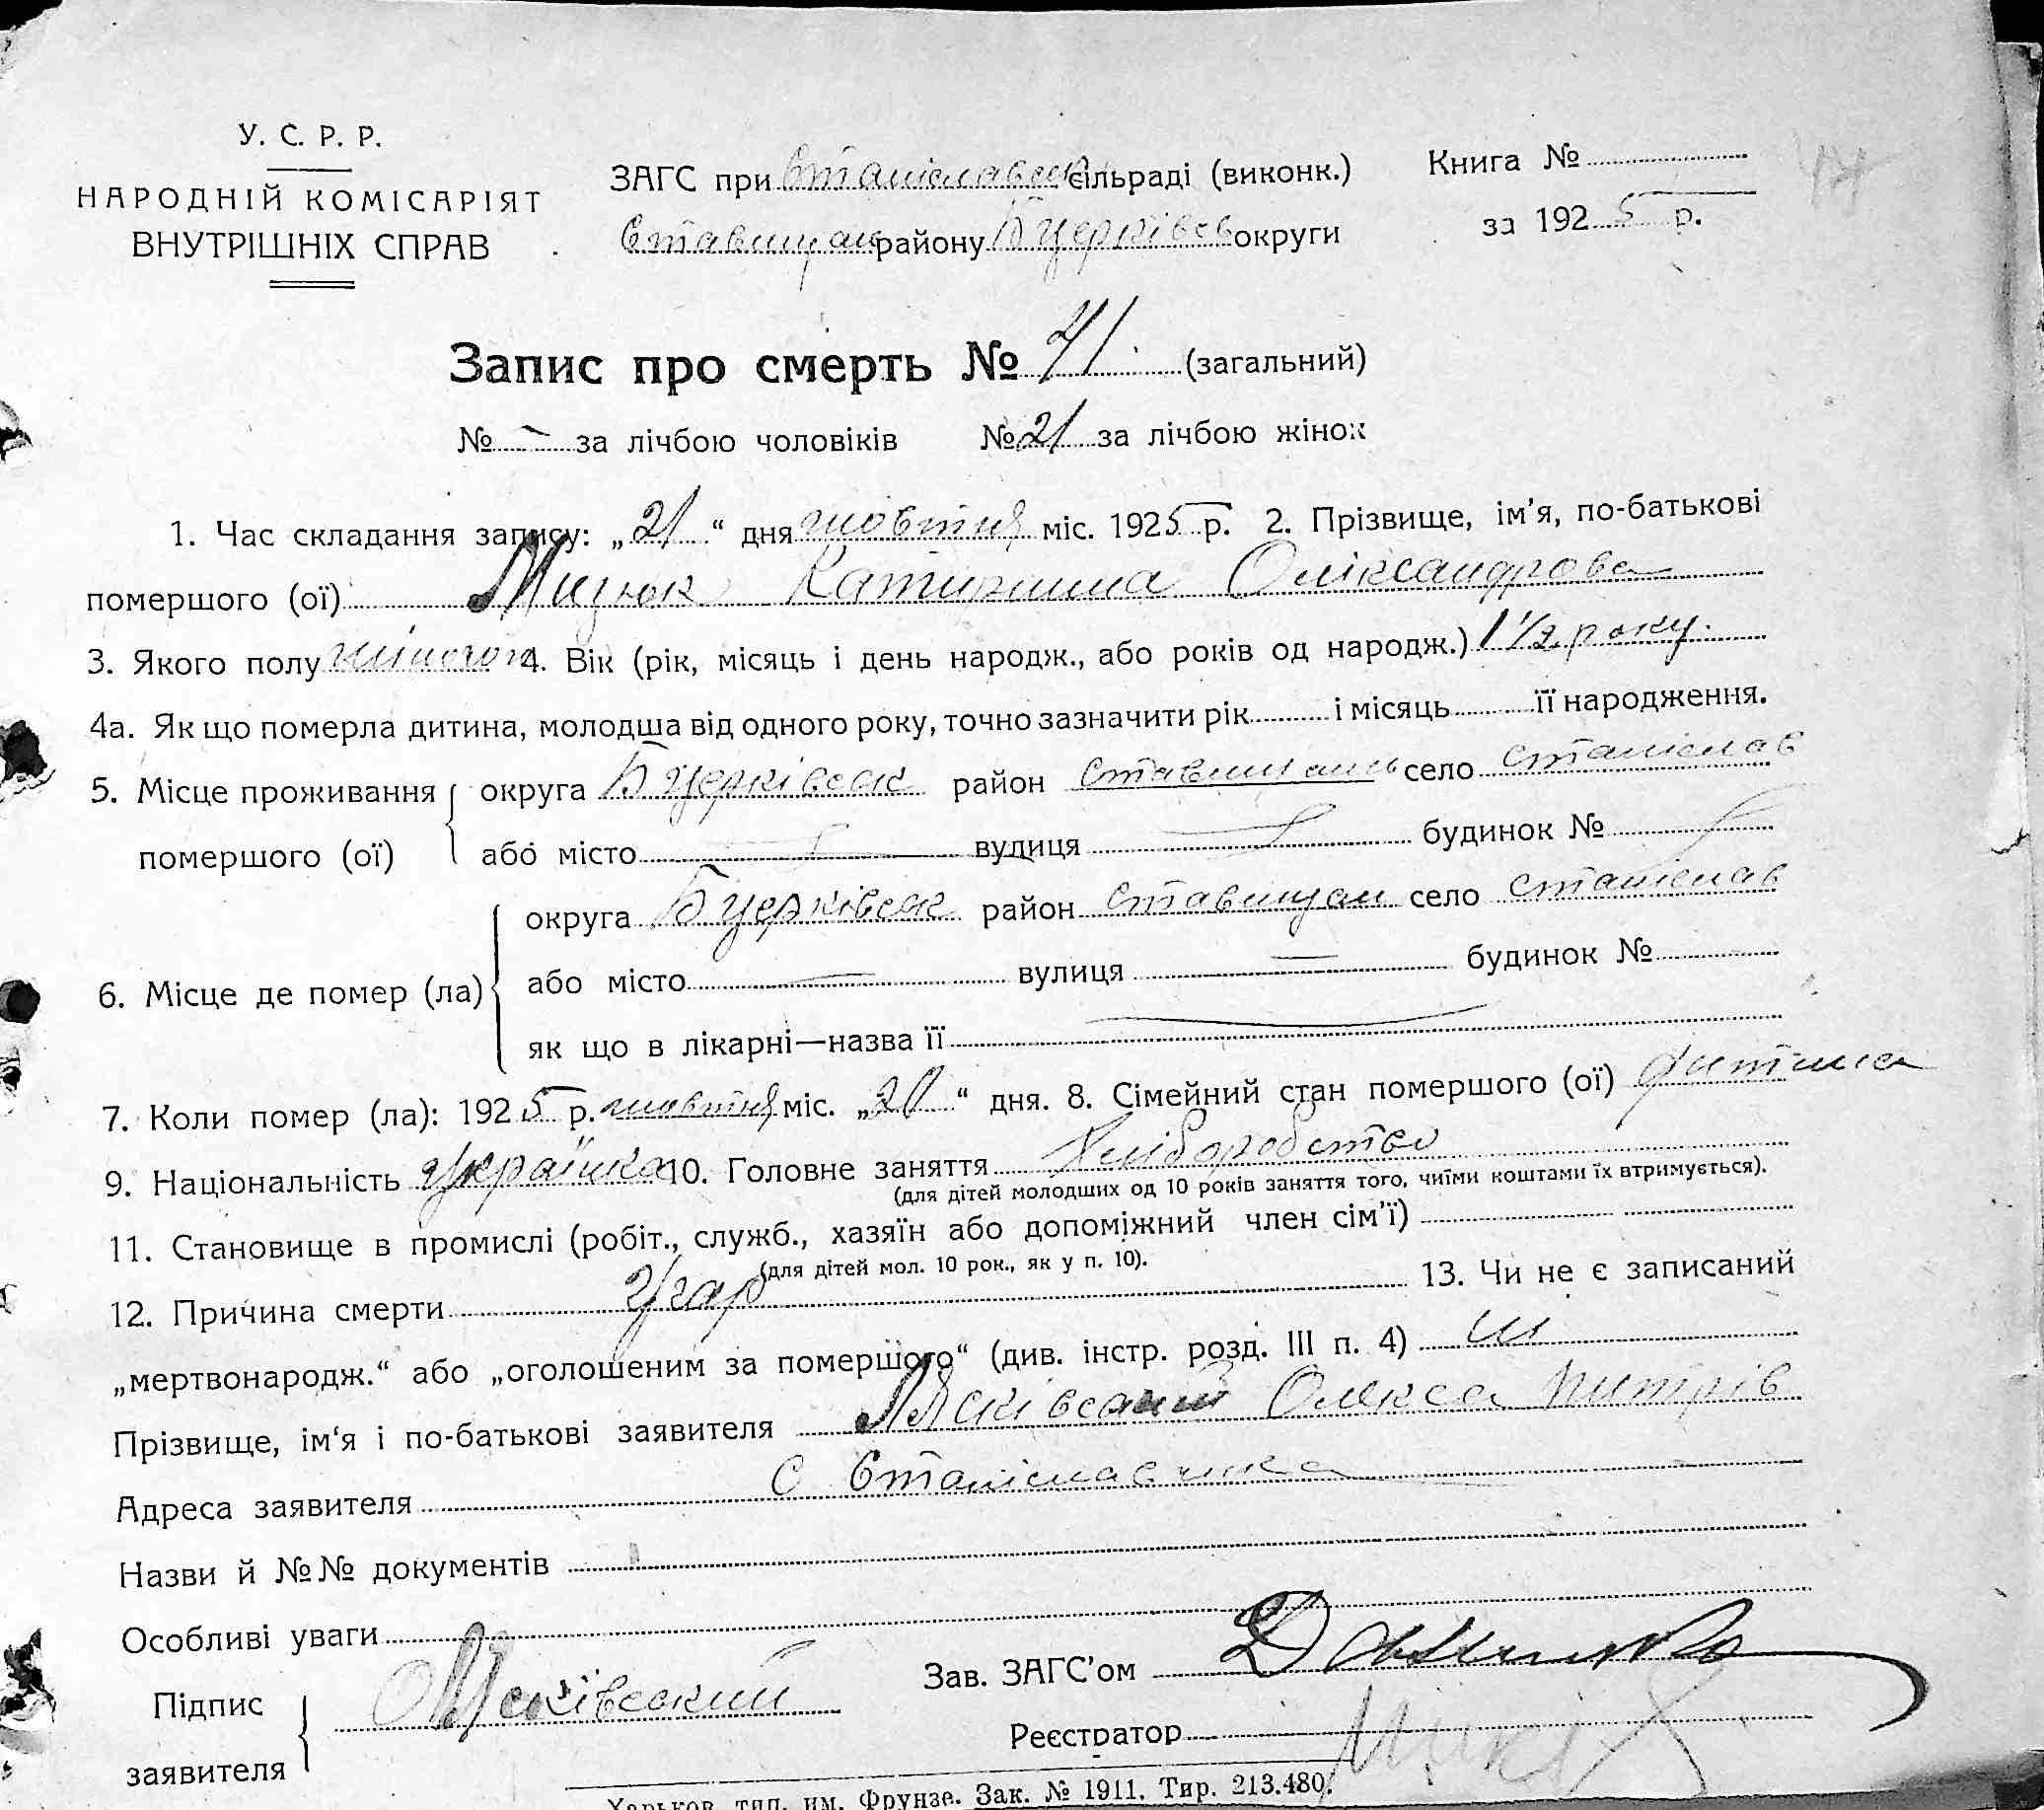 У. С. Р. Р.
НАРОДНІЙ КОМІСАРІЯТ
ВНУТРІШНІХ СПРАВ
ЗАГС при Станіславськ сільраді (виконк.)
Ставищан району Б Церківськ округи
Книга №
за 192 5 р.
Запис про смерть № 71. (загальний)
№ — за лічбою чоловіків № 21 за лічбою жінок
1. Час складання запису: „21“ дня жовтня міс. 1925 р. 2. Прізвище, ім’я, по-батькові
помершого (ої) Мицюк Катирина Оліксандрова
3. Якого полу жіночого 4. Вік (рік, місяць і день народж., або років од народж.) 1 1/2 року.
4а. Як що померла дитина, молодша від одного року, точно зазначити рік і місяць її народження.
5. Місце проживання округа Б Церківськ район Ставищанськ село Станіслав
помершого (ої) або місто вулиця будинок №
округа Б Церківськ район Ставищан село Станіслав
6. Місце де помер (ла) або місто — вулиця — будинок № —
як що в лікарні—назва її
7. Коли помер (ла): 192 5 р. жовтня міс. „20“ дня. 8. Сімейний стан помершого (ої) дитина
9. Національність Українка 10. Головне заняття Хліборобство
(для дітей молодших од 10 років заняття того, чиїми коштами їх втримується).
11. Становище в промислі (робіт., служб., хазяїн або допоміжний член сім’ї)
(для дітей мол. 10 рок., як у п. 10).
12. Причина смерти Угар 13. Чи не є записаний
„мертвонародж.“ або „оголошеним за помершого“ (див. інстр. розд. III п. 4) ні
Прізвище, ім‘я і по-батькові заявителя Лясківський Олекса Дмитрів
Адреса заявителя с Станіславчика
Назви й №№ документів
Особливі уваги
Підпис
заявителя
О Лясківський
Зав. ЗАГС’ом
Реєстратор
Харьков, тип. им. Фрунзе. Зак. № 1911. Тир. 213.480.